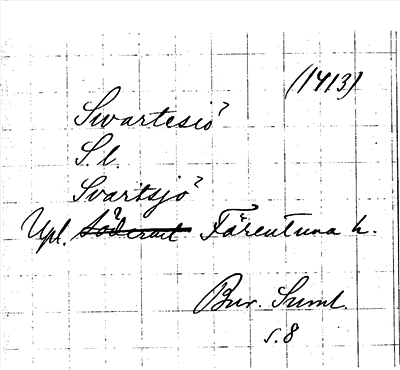 (1413)
Swartesiö?
S.l.
Svartsjö?
Upl. Färentuna h.
Bur. Suml.
s. 8